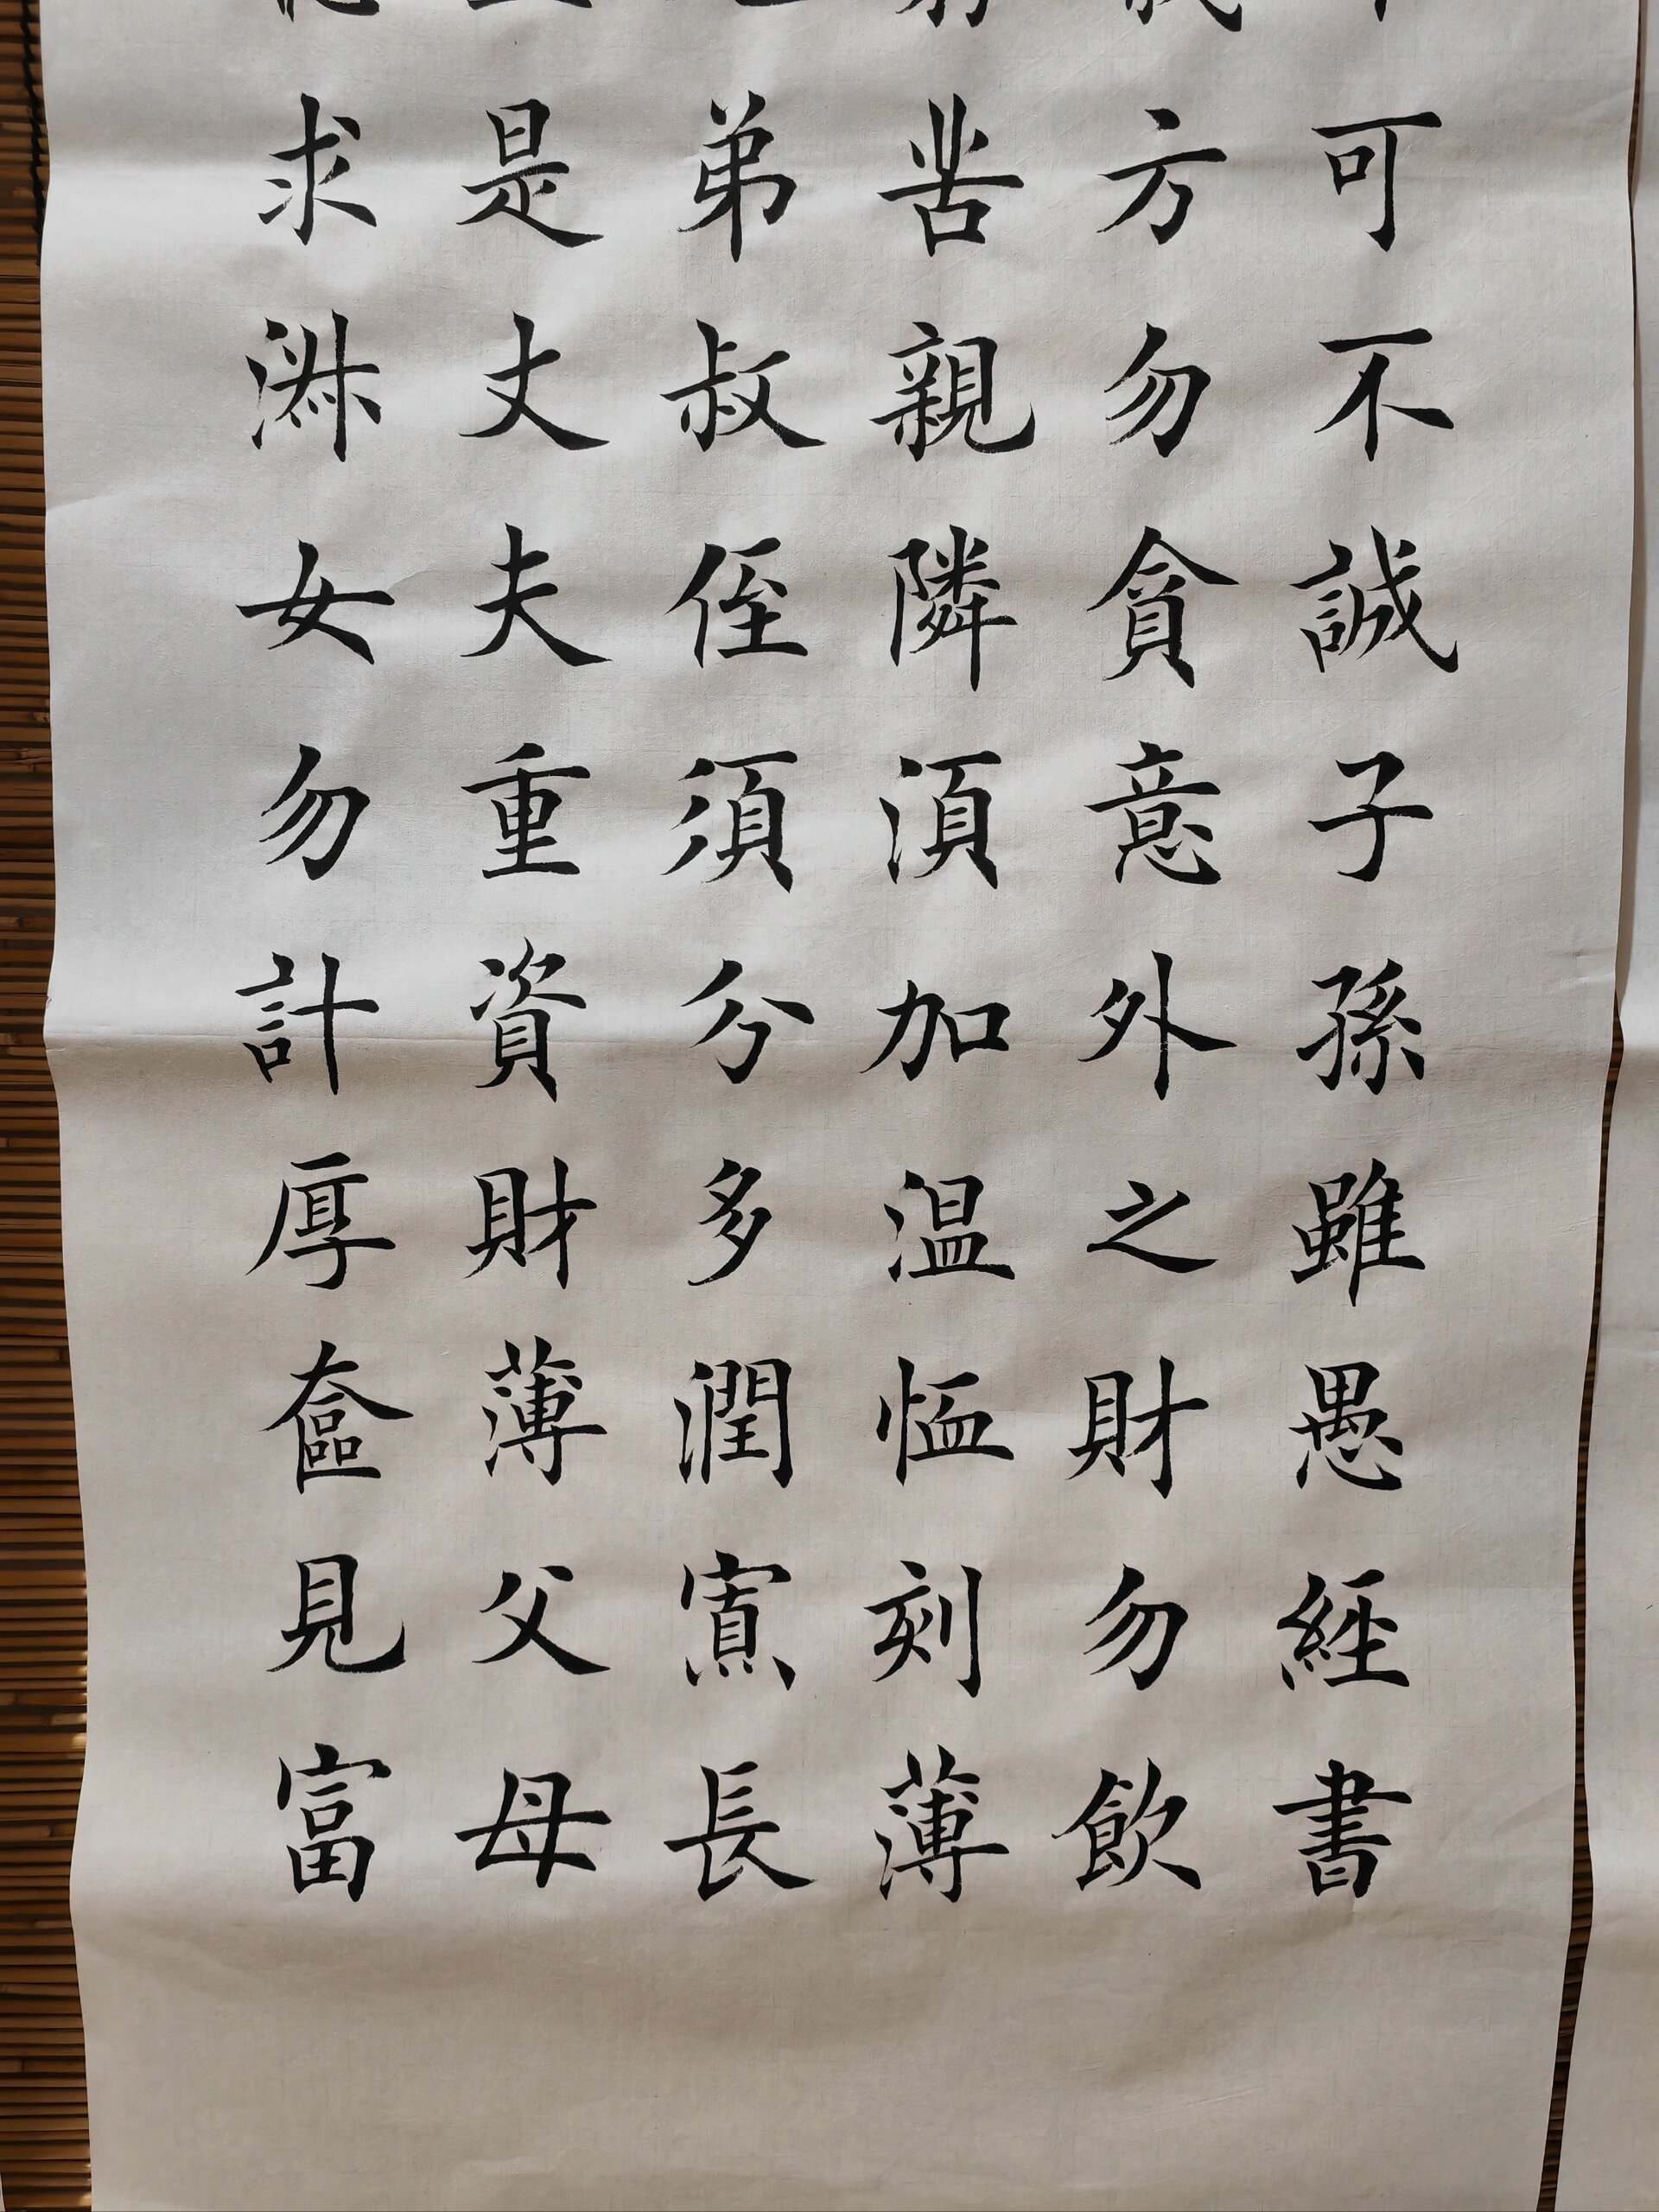 可不誠子孫雖愚經書
方勿貪意外之財勿飲
苦親隣須加温恤刻薄
弟叔侄須分多潤寡長
是丈夫重資財薄父母
求淑女勿計厚奩見富